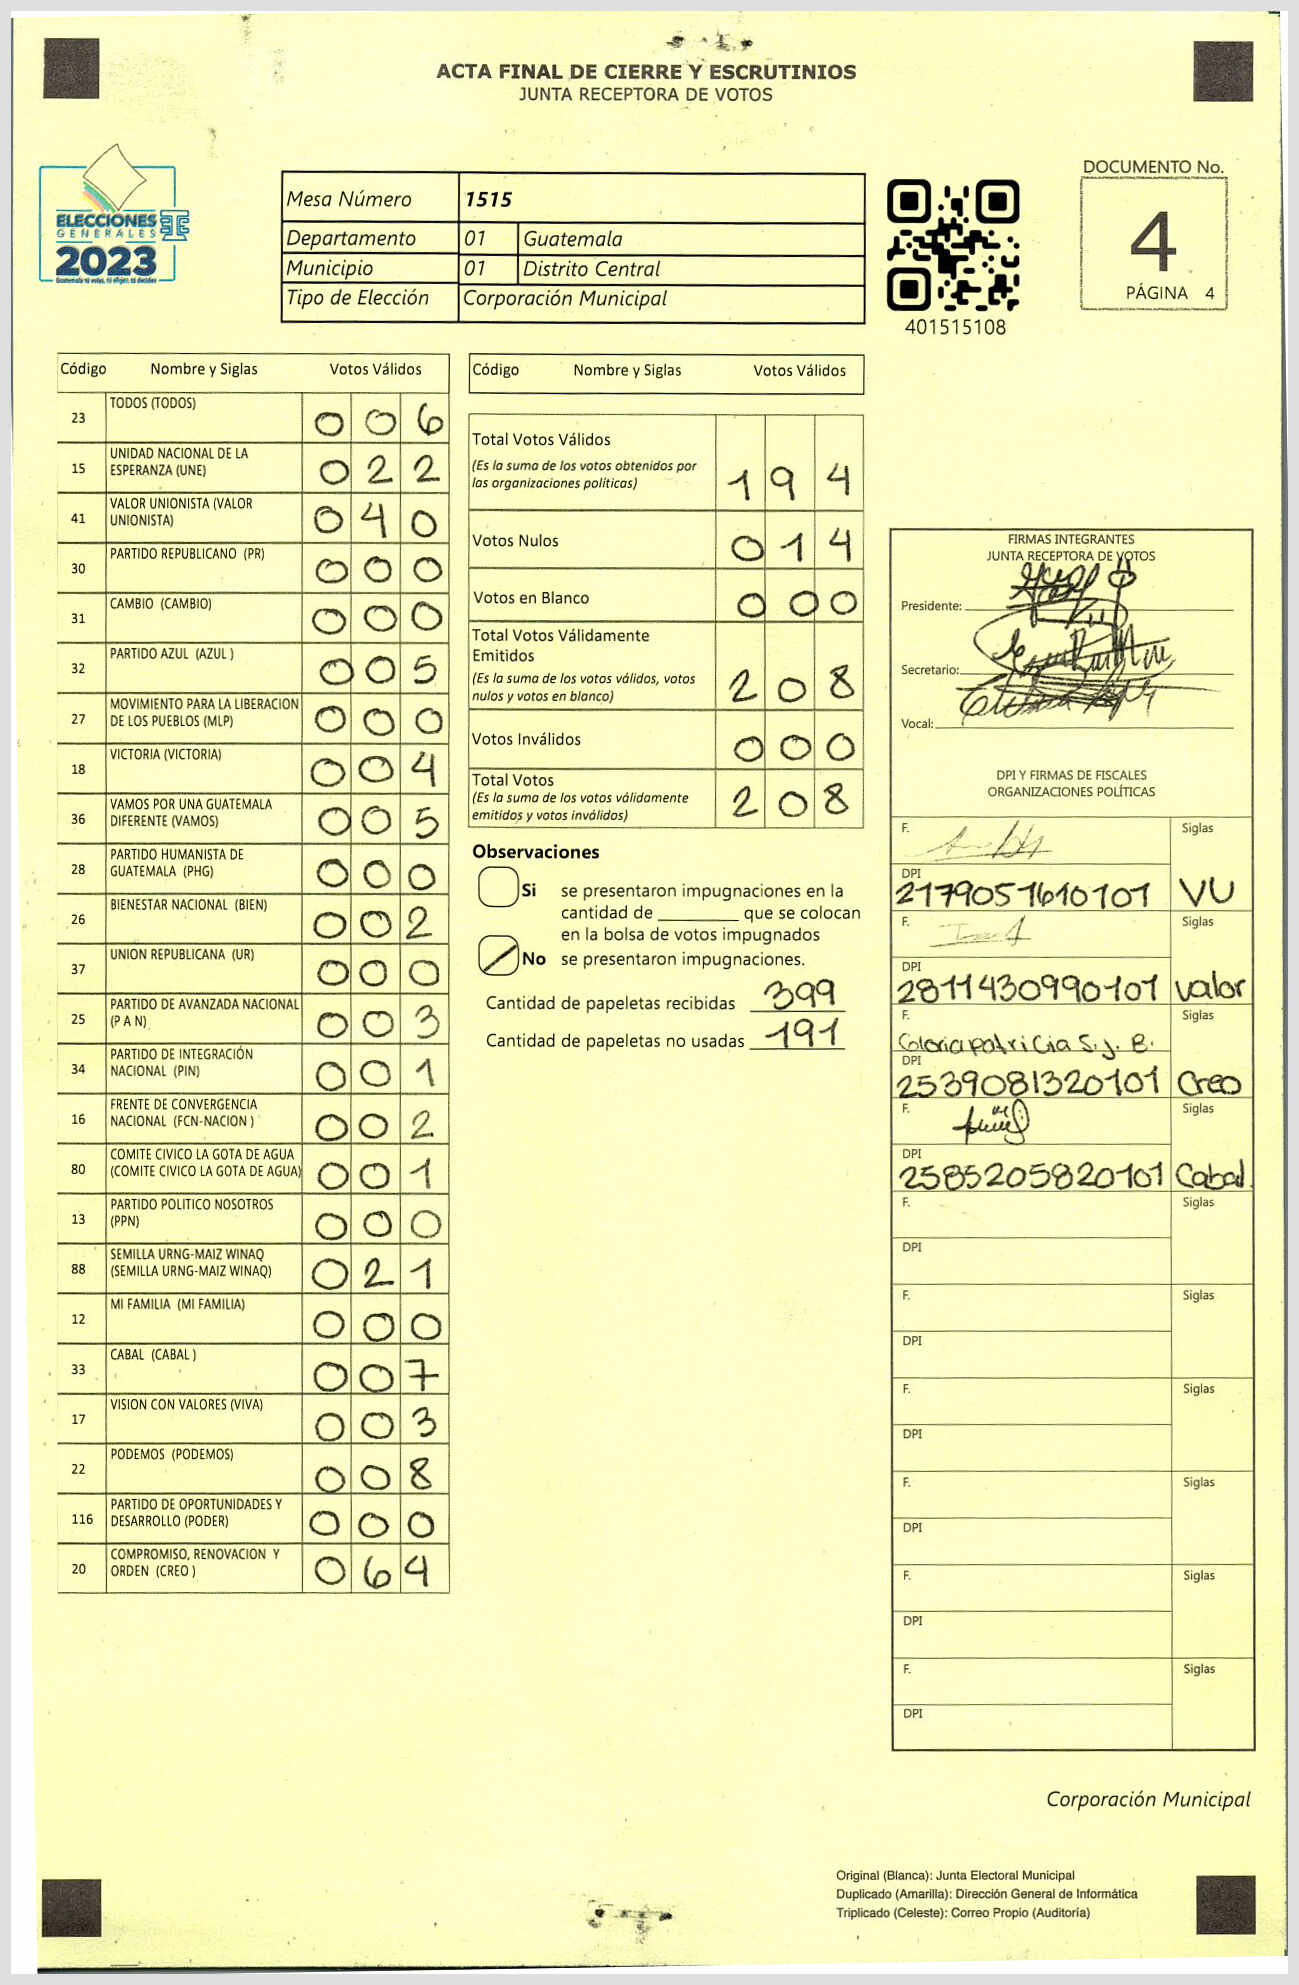 ACTA FINAL DE CIERRE Y ESCRUTINIOS
JUNTA RECEPTORA DE VOTOS
ELECCIONES
GENERALES
2023
Guatemala tú votas, tú eliges, tú decides
Mesa Número 1515
Departamento 01 Guatemala
Municipio 01 Distrito Central
Tipo de Elección Corporación Municipal
401515108
DOCUMENTO No.
4
PÁGINA 4
Código Nombre y Siglas Votos Válidos
23 TODOS (TODOS) 0 0 6
15 UNIDAD NACIONAL DE LA
ESPERANZA (UNE) 0 2 2
41 VALOR UNIONISTA (VALOR
UNIONISTA) 0 4 0
30 PARTIDO REPUBLICANO (PR) 0 0 0
31 CAMBIO (CAMBIO) 0 0 0
32 PARTIDO AZUL (AZUL ) 0 0 5
27 MOVIMIENTO PARA LA LIBERACION
DE LOS PUEBLOS (MLP) 0 0 0
18 VICTORIA (VICTORIA) 0 0 4
36 VAMOS POR UNA GUATEMALA
DIFERENTE (VAMOS) 0 0 5
28 PARTIDO HUMANISTA DE
GUATEMALA (PHG) 0 0 0
26 BIENESTAR NACIONAL (BIEN) 0 0 2
37 UNION REPUBLICANA (UR) 0 0 0
25 PARTIDO DE AVANZADA NACIONAL
(P A N) 0 0 3
34 PARTIDO DE INTEGRACIÓN
NACIONAL (PIN) 0 0 1
16 FRENTE DE CONVERGENCIA
NACIONAL (FCN-NACION ) 0 0 2
80 COMITE CIVICO LA GOTA DE AGUA
(COMITE CIVICO LA GOTA DE AGUA) 0 0 1
13 PARTIDO POLITICO NOSOTROS
(PPN) 0 0 0
88 SEMILLA URNG-MAIZ WINAQ
(SEMILLA URNG-MAIZ WINAQ) 0 2 1
12 MI FAMILIA (MI FAMILIA) 0 0 0
33 CABAL (CABAL ) 0 0 7
17 VISION CON VALORES (VIVA) 0 0 3
22 PODEMOS (PODEMOS) 0 0 8
116 PARTIDO DE OPORTUNIDADES Y
DESARROLLO (PODER) 0 0 0
20 COMPROMISO, RENOVACION Y
ORDEN (CREO ) 0 6 4
Código Nombre y Siglas Votos Válidos
Total Votos Válidos
(Es la suma de los votos obtenidos por
las organizaciones políticas) 1 9 4
Votos Nulos 0 1 4
Votos en Blanco 0 0 0
Total Votos Válidamente
Emitidos
(Es la suma de los votos válidos, votos
nulos y votos en blanco) 2 0 8
Votos Inválidos 0 0 0
Total Votos
(Es la suma de los votos válidamente
emitidos y votos inválidos) 2 0 8
Observaciones
Si se presentaron impugnaciones en la
cantidad de ________ que se colocan
en la bolsa de votos impugnados
No se presentaron impugnaciones.
Cantidad de papeletas recibidas 399
Cantidad de papeletas no usadas 191
FIRMAS INTEGRANTES
JUNTA RECEPTORA DE VOTOS
Presidente:
Secretario:
Vocal:
DPI Y FIRMAS DE FISCALES
ORGANIZACIONES POLÍTICAS
F. Siglas
DPI
2179051610101 VU
F. Siglas
DPI
2811430990101 Valor
F. Siglas
Gloria patricia S. j. B.
DPI
2539081320101 Creo
F. Siglas
DPI
2585205820101 Cabal
F. Siglas
DPI
F. Siglas
DPI
F. Siglas
DPI
F. Siglas
DPI
F. Siglas
DPI
F. Siglas
DPI
Corporación Municipal
Original (Blanca): Junta Electoral Municipal
Duplicado (Amarilla): Dirección General de Informática
Triplicado (Celeste): Correo Propio (Auditoría)